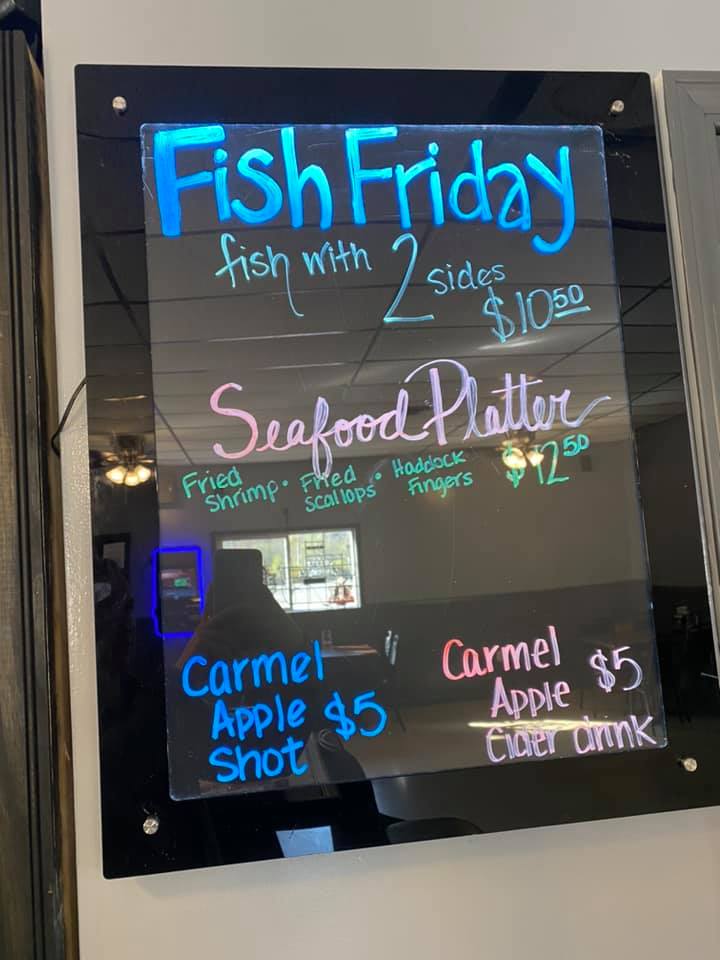 Fish Friday
fish with 2 sides
$10 50
Seafood Platter
Fried Shrimp • Fried Scallops • Haddock Fingers $12 50
Carmel
Apple $5
Shot
Carmel
Apple $5
Cider drink